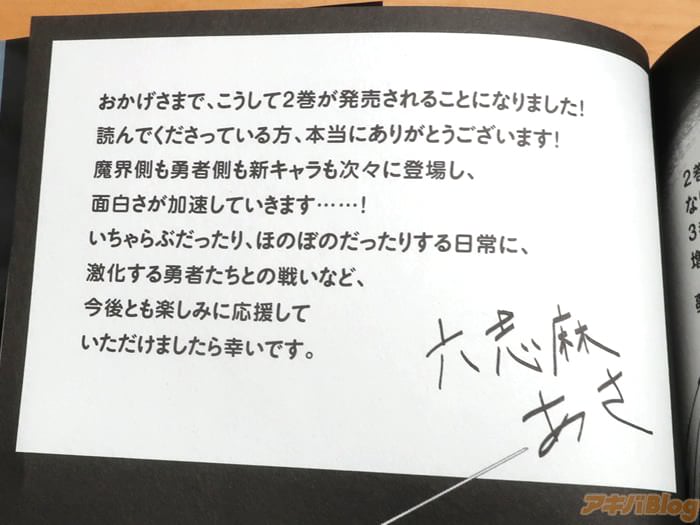 おかげさまで、こうして2巻が発売されることになりました!
読んでくださっている方、本当にありがとうございます!
魔界側も勇者側も新キャラも次々に登場し、
面白さが加速していきます……!
いちゃらぶだったり、ほのぼのだったりする日常に、
激化する勇者たちとの戦いなど、
今後とも楽しみに応援して
いただけましたら幸いです。
六志麻
あさ
2巻
な
3
増
アキバBlog